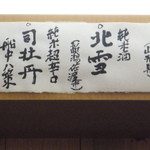 純米酒
北雪
(新潟・佐渡)
純米超辛口
司牡丹
船中八策